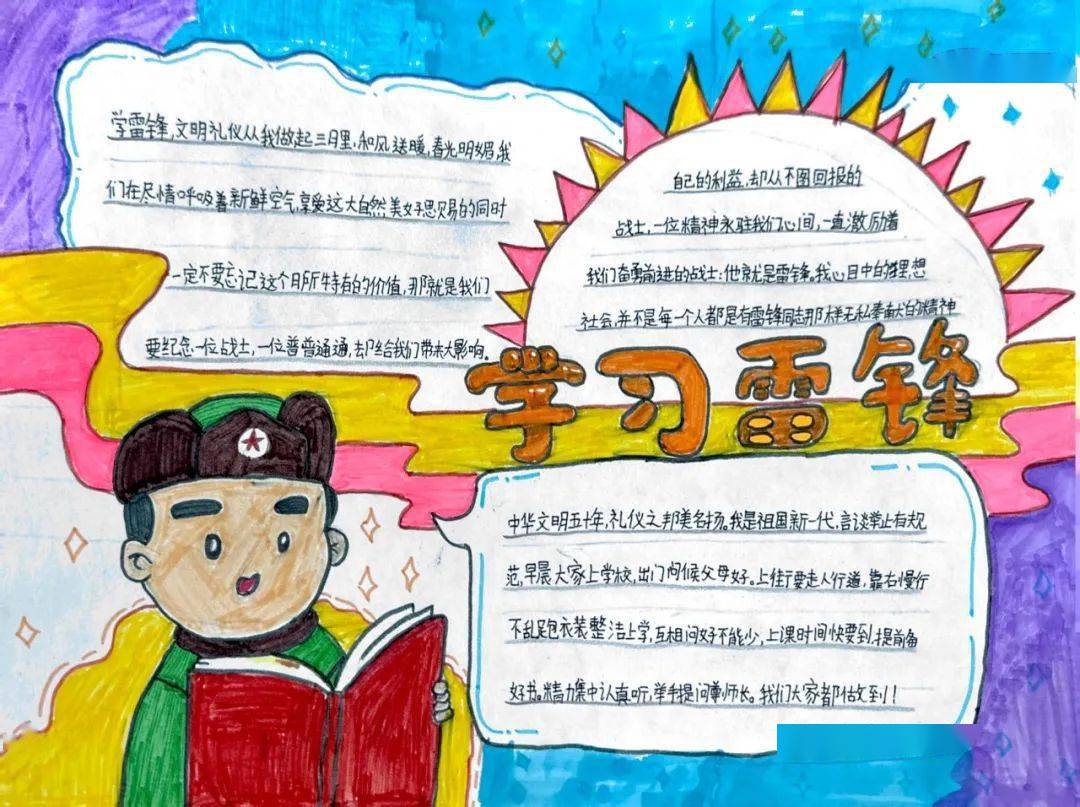 学雷锋,文明礼仪从我做起三月里,和风送暖,春光明媚,我
们在尽情呼吸着新鲜空气,享受这大自然美好思贸易的同时
一定不要忘记这个月所特有的价值,那就是我们
要纪念一位战士,一位普普通通,却给我们带来大影响。
自己的利益,却从不图回报的
战士,一位精神永驻我们心间,一直激励着
我们奋勇前进的战士:他就是雷锋。我心目中的理想
社会,并不是每一个人都是有雷锋同志那样无私奉献的精神
学习雷锋
中华文明五十年,礼仪之邦美名扬。我是祖国新一代,言谈举止有规
范,早晨大家上学校,出门问候父母好。上街要走人行道,靠右慢行
不乱跑衣装整洁上学,互相问好不能少,上课时间快要到.提前备
好书。精力集中认真听,举手提问尊师长。我们大家都做到!